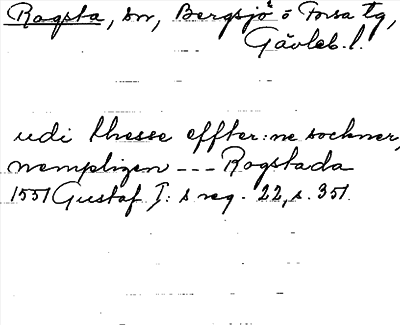 Rogsta, sn, Bergsjö o Forsa tg,
Gävleb. l.
udi thesse effter:ne sochner,
nempligen --- Rogstada
1551 Gustaf I:s reg. 22, s. 351.